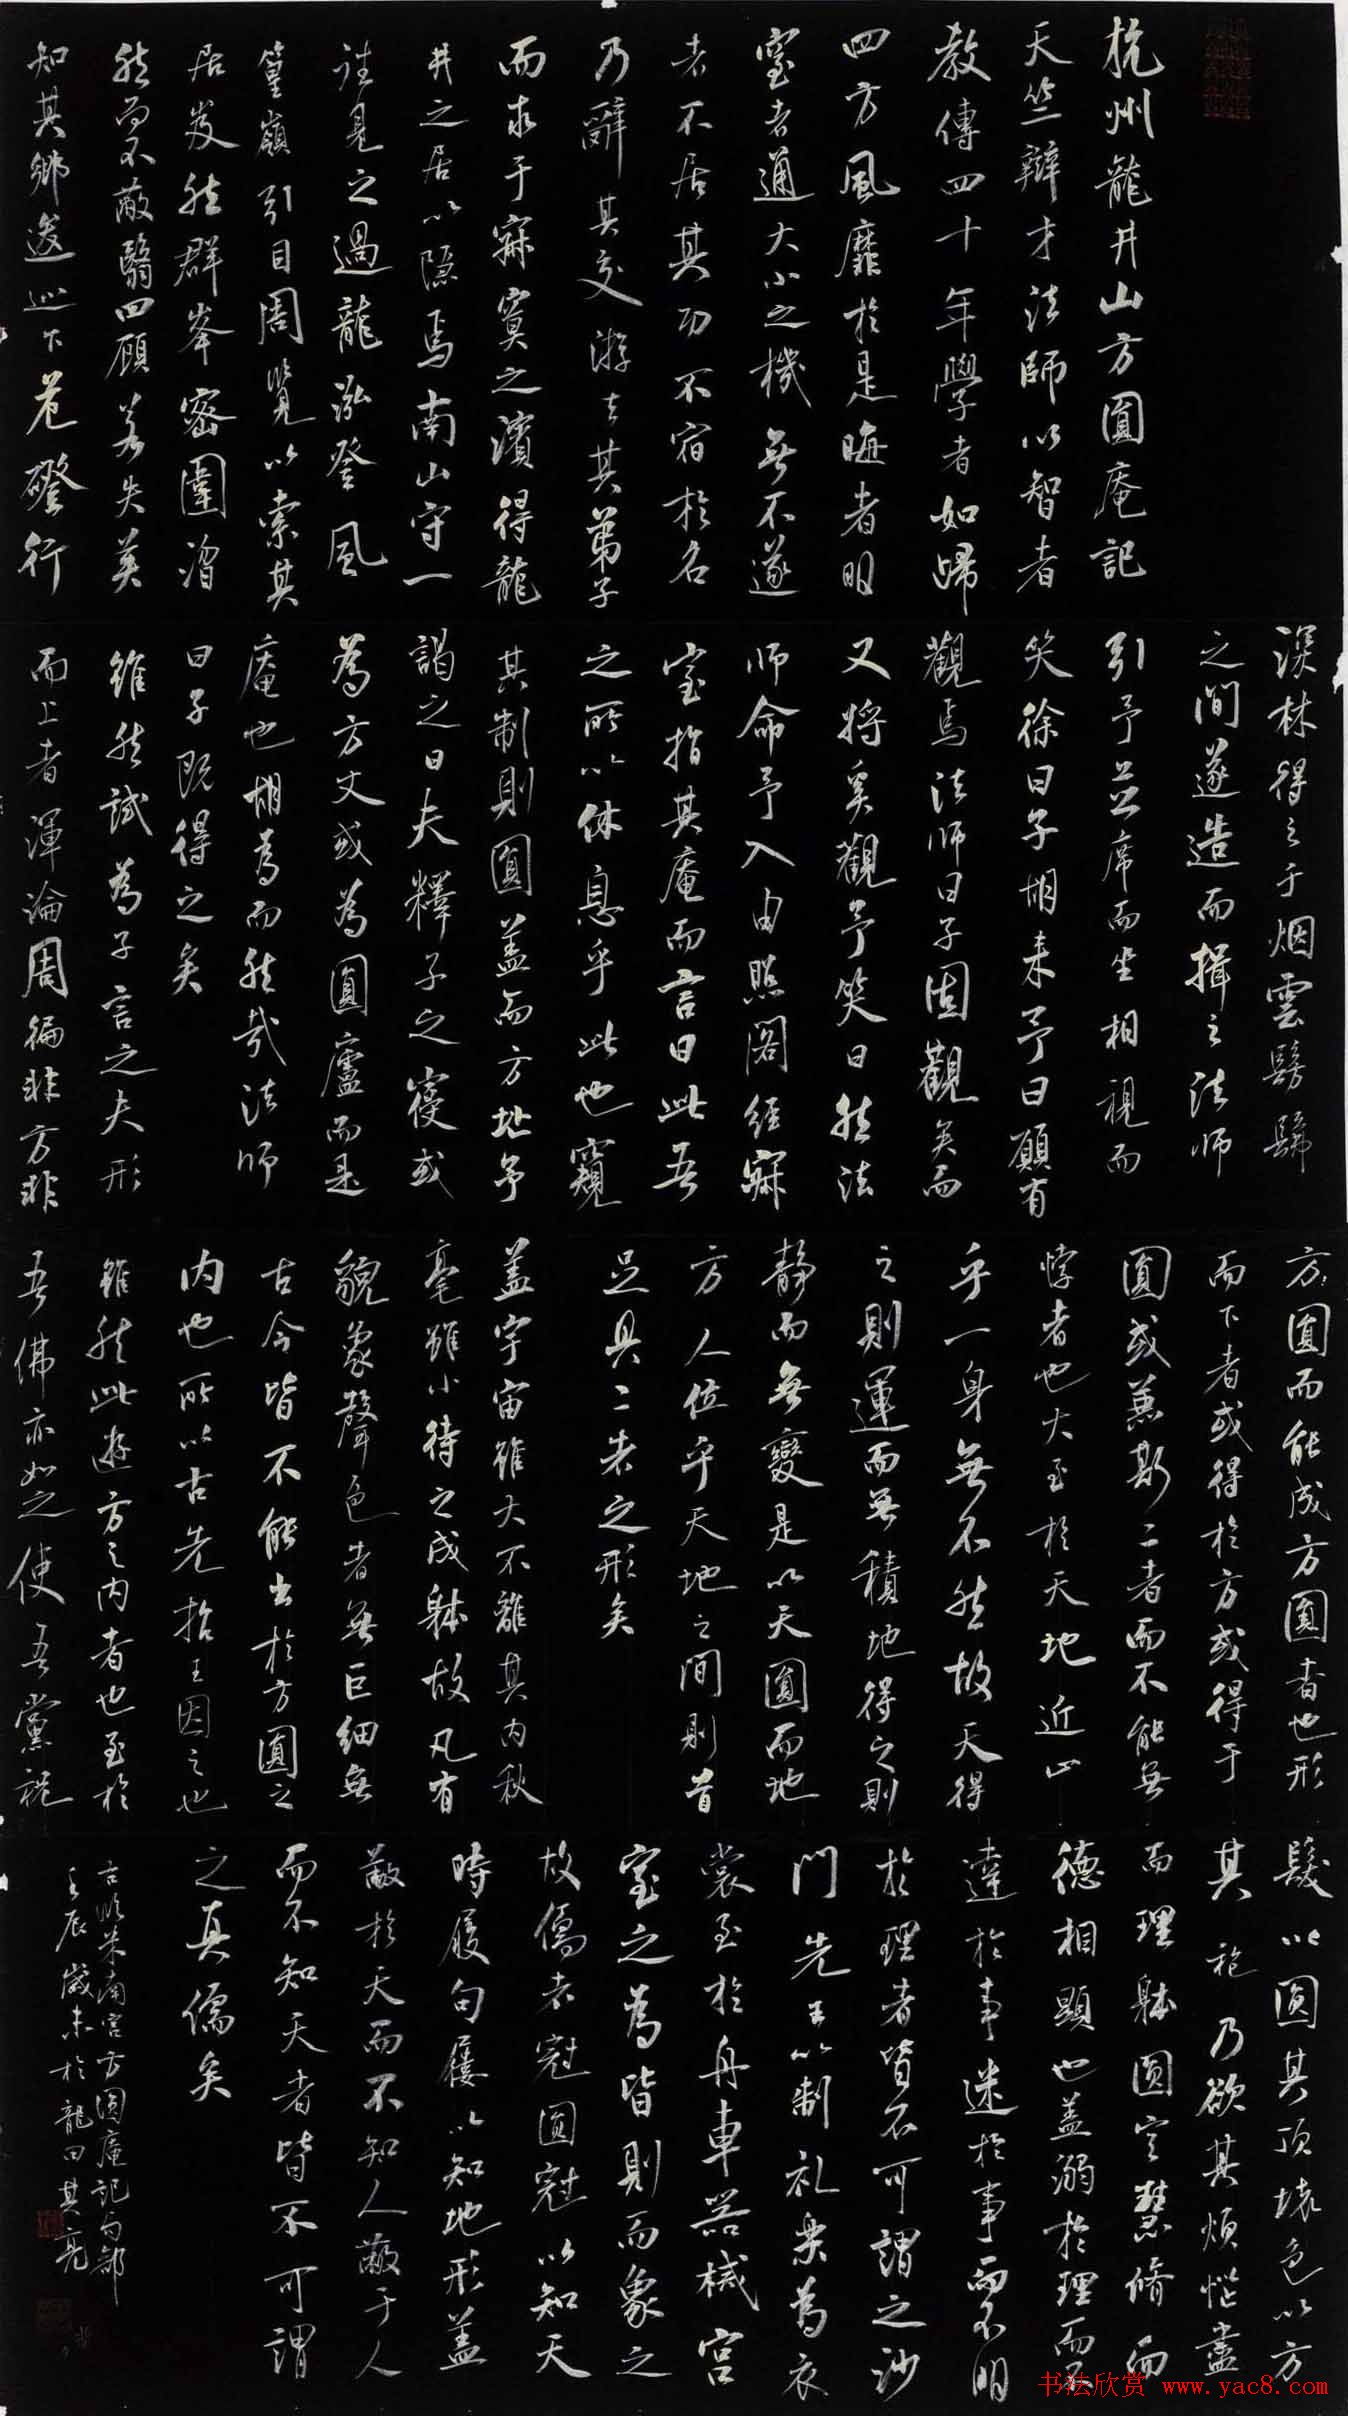 杭州龍井山方圓庵記
天竺辯才法師以智者
教傳四十年學者如歸
四方風靡於是晦者明
窒者通大小之機無不遂
者不居其功不宿於名
乃辭其交游去其弟子
而求于寂寞之濱得龍
井之居以隱焉南山守一
往見之過龍泓登風
篁嶺引目周覽以索其
居岌然群峯密圍
然而不蔽翳四顧若失莫
知其鄉逡巡下危磴行
深林得之于烟雲髣髴
之間遂造而揖之法師
引予並席而坐相視而
笑徐曰子胡来予曰願有
觀焉法師曰子固觀矣而
又將奚觀予笑曰然法
師命予入由照閣經寂
室指其庵而言曰此吾
之所以休息乎此也窺
其制則圓蓋而方地予
謁之曰夫釋子之寢或
為方丈或為圓廬而是
庵也胡為而然哉法師
曰子既得之矣
雖然試為子言之夫形
而上者渾淪周徧非方非
方圓而能成方圓者也形
而下者或得於方或得于
圓或兼斯二者而不能無
悖者也大至於天地近止
乎一身無不然故天得
之則運而無積地得之則
静而無變是以天圓而地
方人位乎天地之間則首
足具二者之形矣
蓋宇宙雖大不離其内秋
毫雖小待之成躰故凡有
貌象聲色者無巨細無
古今皆不能出於方圓之
内也所以古先哲王因之也
雖然此遊方之内者也至於
吾佛亦如之使吾黨祝
髮以圓其頂壊色以方
其袍乃欲其煩惱盡
而理躰圓定慧脩而
德相顯也蓋溺於理而不
達於事迷於事而不明
於理者皆不可謂之沙
門先王以制礼樂為衣
裳至於舟車器械宮
室之為皆則而象之
故儒者冠圓冠以知天
時履句屨以知地形蓋
蔽於天而不知人蔽于人
而不知天者皆不可謂
之真儒矣
右臨米南宫方圓庵記句鄒
壬辰歲末於龍田其亮
书法欣赏 www.yac8.com